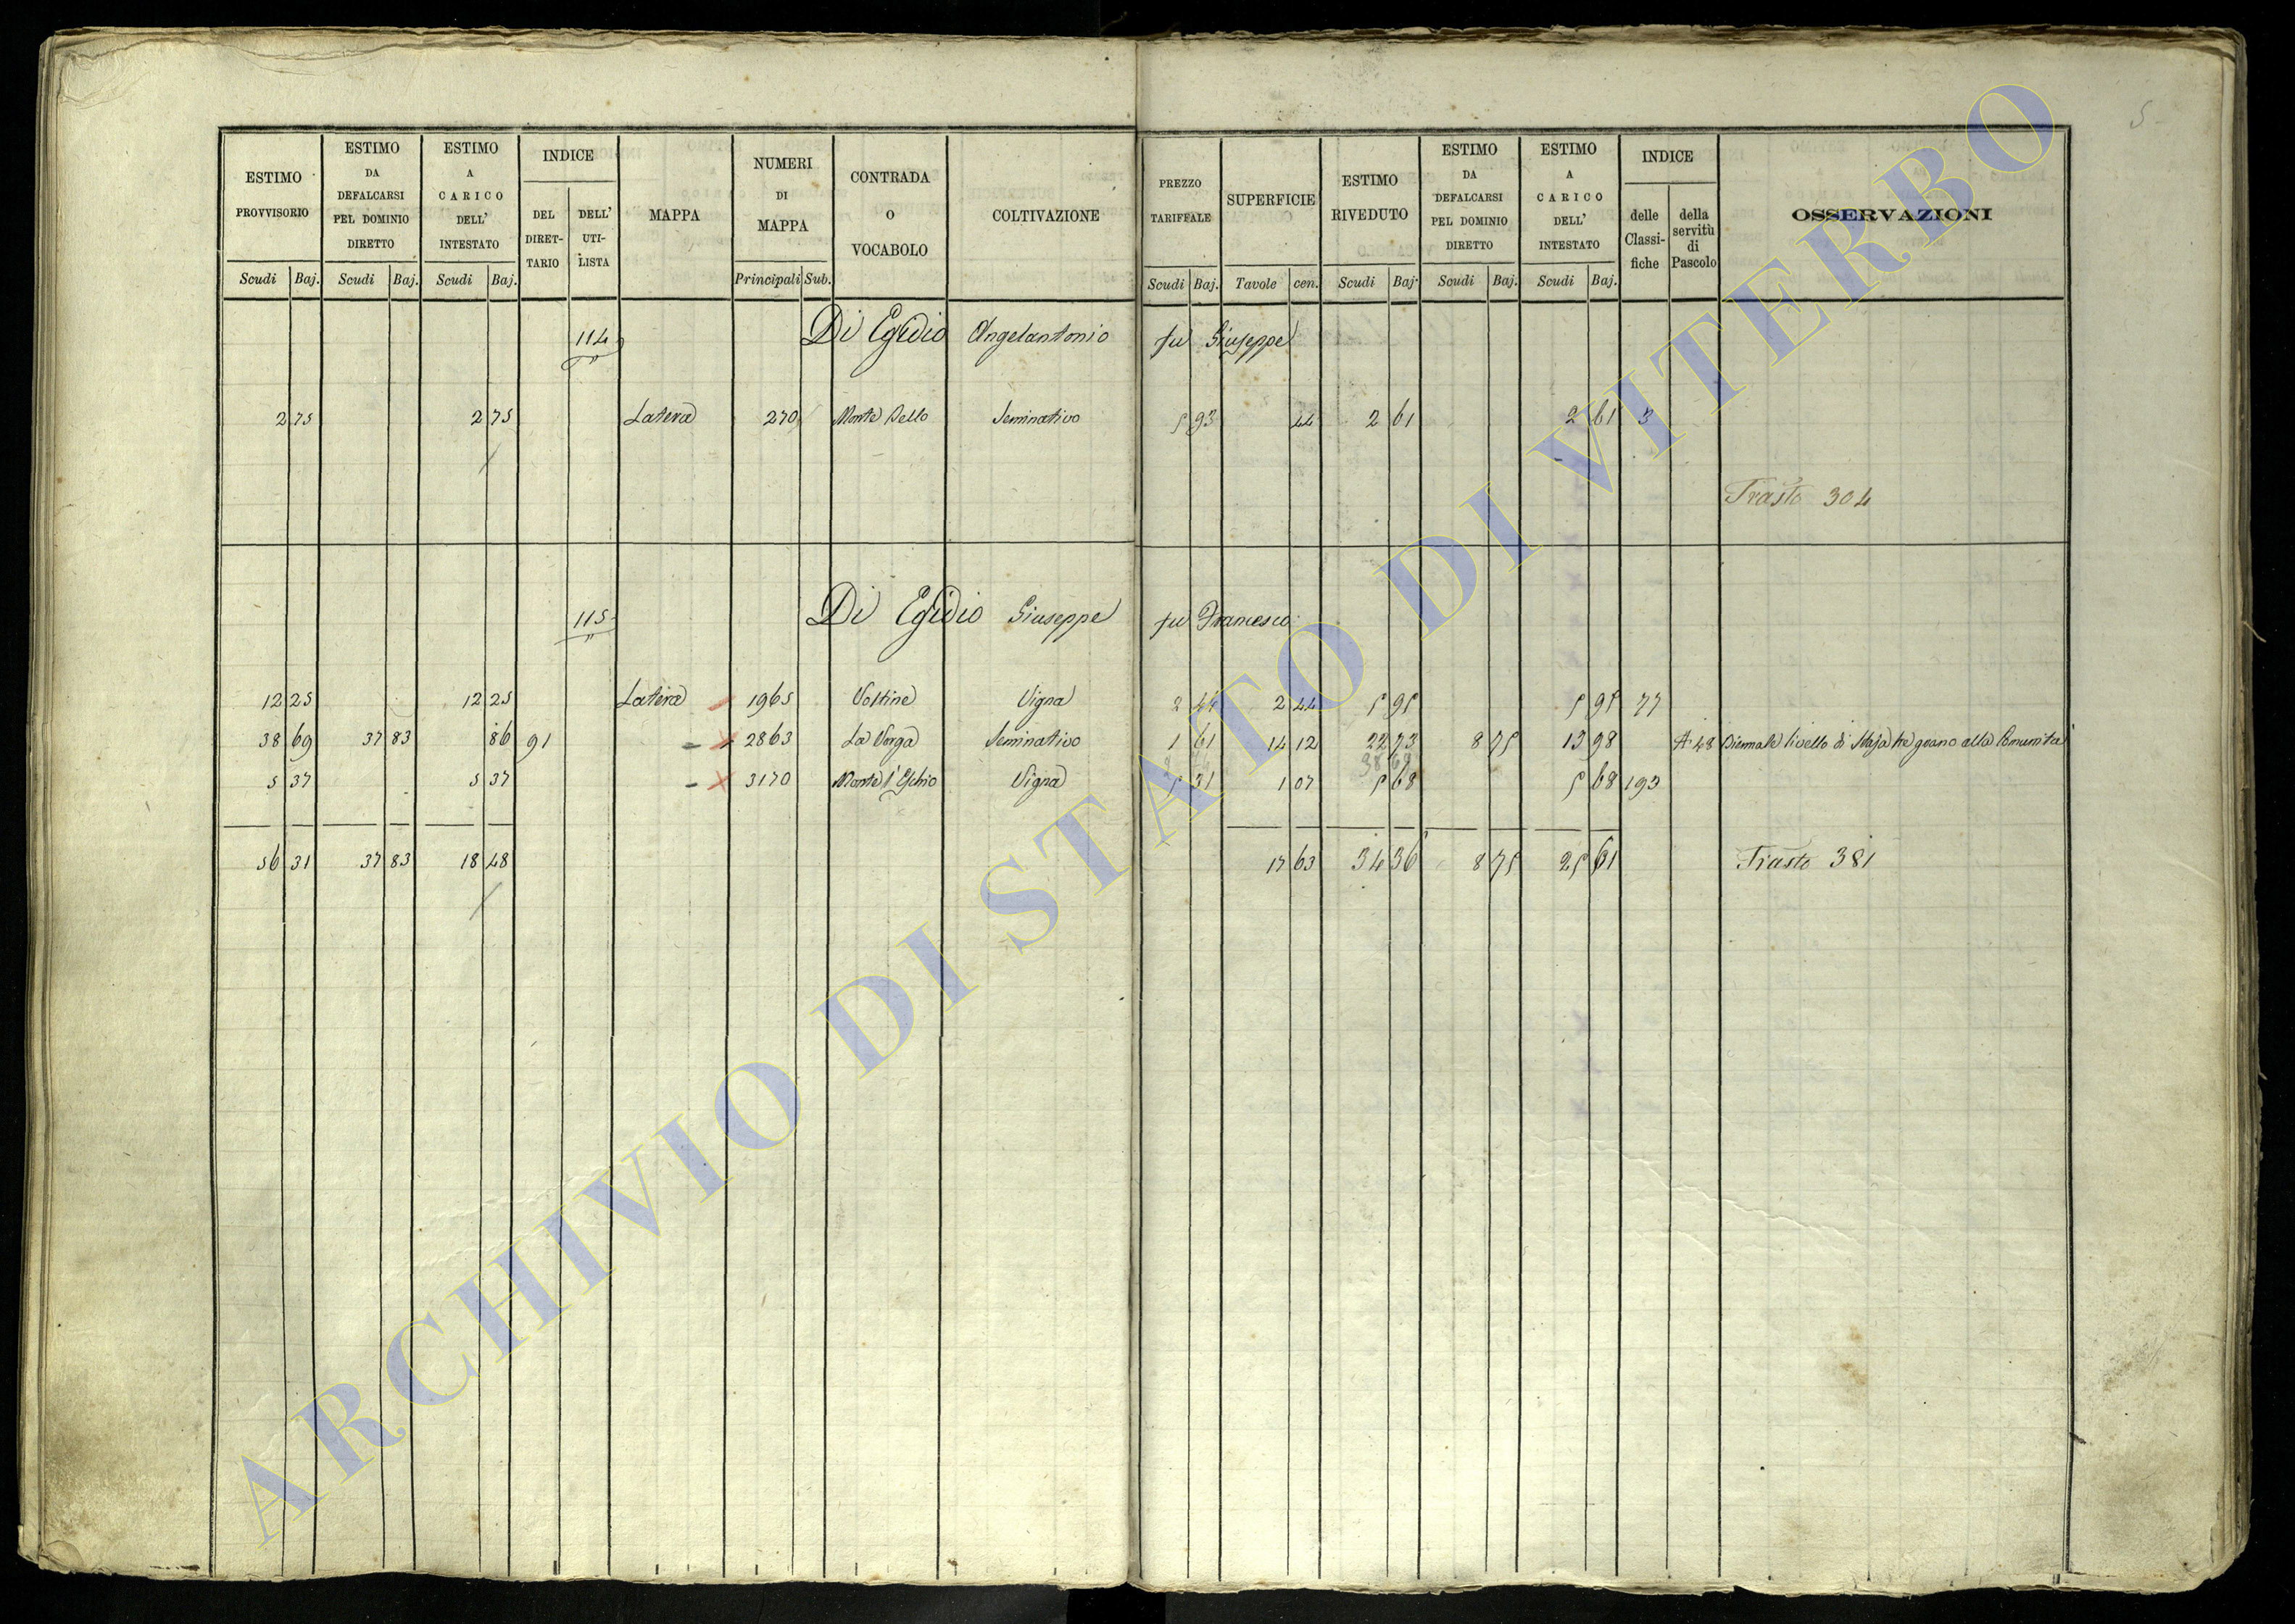 5
ESTIMO PROVVISORIO Scudi Baj.
ESTIMO DA DEFALCARSI PEL DOMINIO DIRETTO Scudi Baj.
ESTIMO A CARICO DELL' INTESTATO Scudi Baj.
INDICE DEL DIRET- TARIO DELL' UTI- LISTA
MAPPA
NUMERI DI MAPPA Principali Sub.
CONTRADA O VOCABOLO
COLTIVAZIONE
PREZZO TARIFFALE Scudi Baj.
SUPERFICIE Tavole cen.
ESTIMO RIVEDUTO Scudi Baj.
ESTIMO DA DEFALCARSI PEL DOMINIO DIRETTO Scudi Baj.
ESTIMO A CARICO DELL' INTESTATO Scudi Baj.
INDICE delle Classi- fiche della servitù di Pascolo
OSSERVAZIONI
114 Di Egidio Angelantonio fu Giuseppe
2 75 2 75 Latera 270 Monte Sello Seminativo 5 93 44 2 61 2 61 3
Trasto 304
115 Di Egidio Giuseppe fu Francesco
12 25 12 25 Latera 1965 Voltine Vigna 2 44 2 44 5 95 5 95 77
38 69 37 83 86 91 2863 La Verga Seminativo 1 61 14 12 22 73 8 75 13 98 A 48 Biennale livello di Staja tre grano alla Comunità
5 37 5 37 3170 Monte l'Eschio Vigna 5 31 1 07 5 68 5 68 193
56 31 37 83 18 48 17 63 34 36 8 75 25 61 Trasto 381
ARCHIVIO DI STATO DI VITERBO